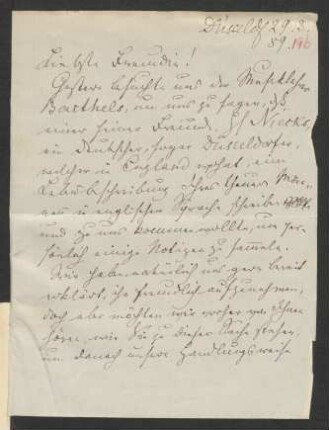 Düsseldf 29. 3.
89. 196
Liebste Freundin!
Gestern besuchte uns der Musiklehrer
Barthels, um uns zu sagen, daß
einer seiner Freunde, Hr Niecks
ein Deutscher, sogar Düsseldorfer,
welcher in England wohnt, eine
Lebensbeschreibung Ihres theuern
in englischer Sprache schreiben
und zu uns kommen wollte, um per-
sönlich einige Notizen zu sammeln.
Wir haben natürlich uns gern bereit
erklärt, ihn freundlich aufzunehmen,
doch aber möchten wir vorher von
hören, wie Du zu dieser Sache stehst,
um danach unsere Handlungsweise